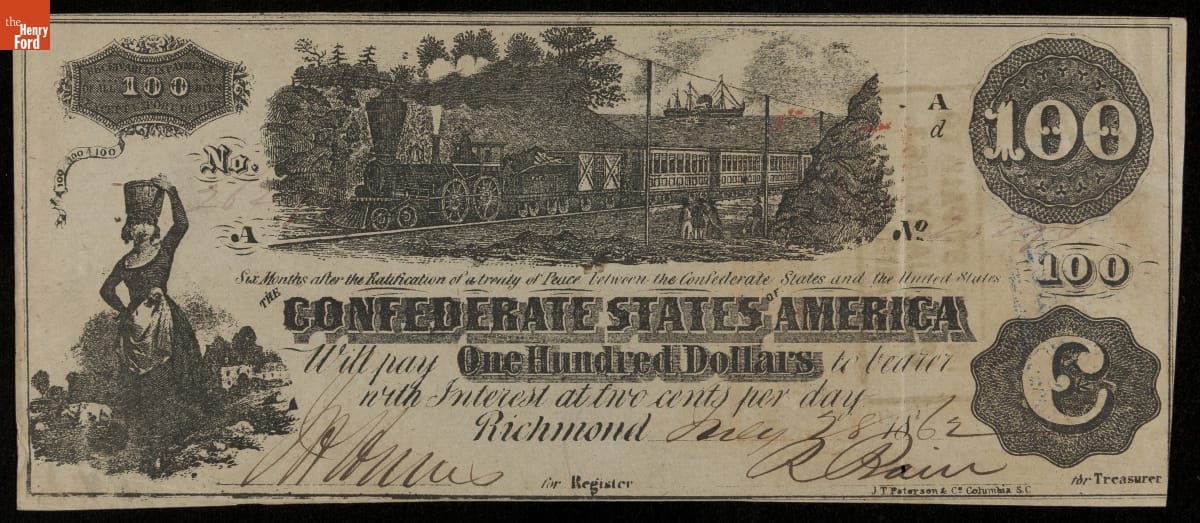 the
Henry
Ford
100
100 100 100
No.
A
A
d
100
No
100
Six Months after the Ratification of a treaty of Peace between the Confederate States and the United States
THE CONFEDERATE STATES OF AMERICA
Will pay One Hundred Dollars to bearer
with Interest at two cents per day
Richmond July 28 1862
C
for Register
for Treasurer
J T Paterson & Co Columbia S.C